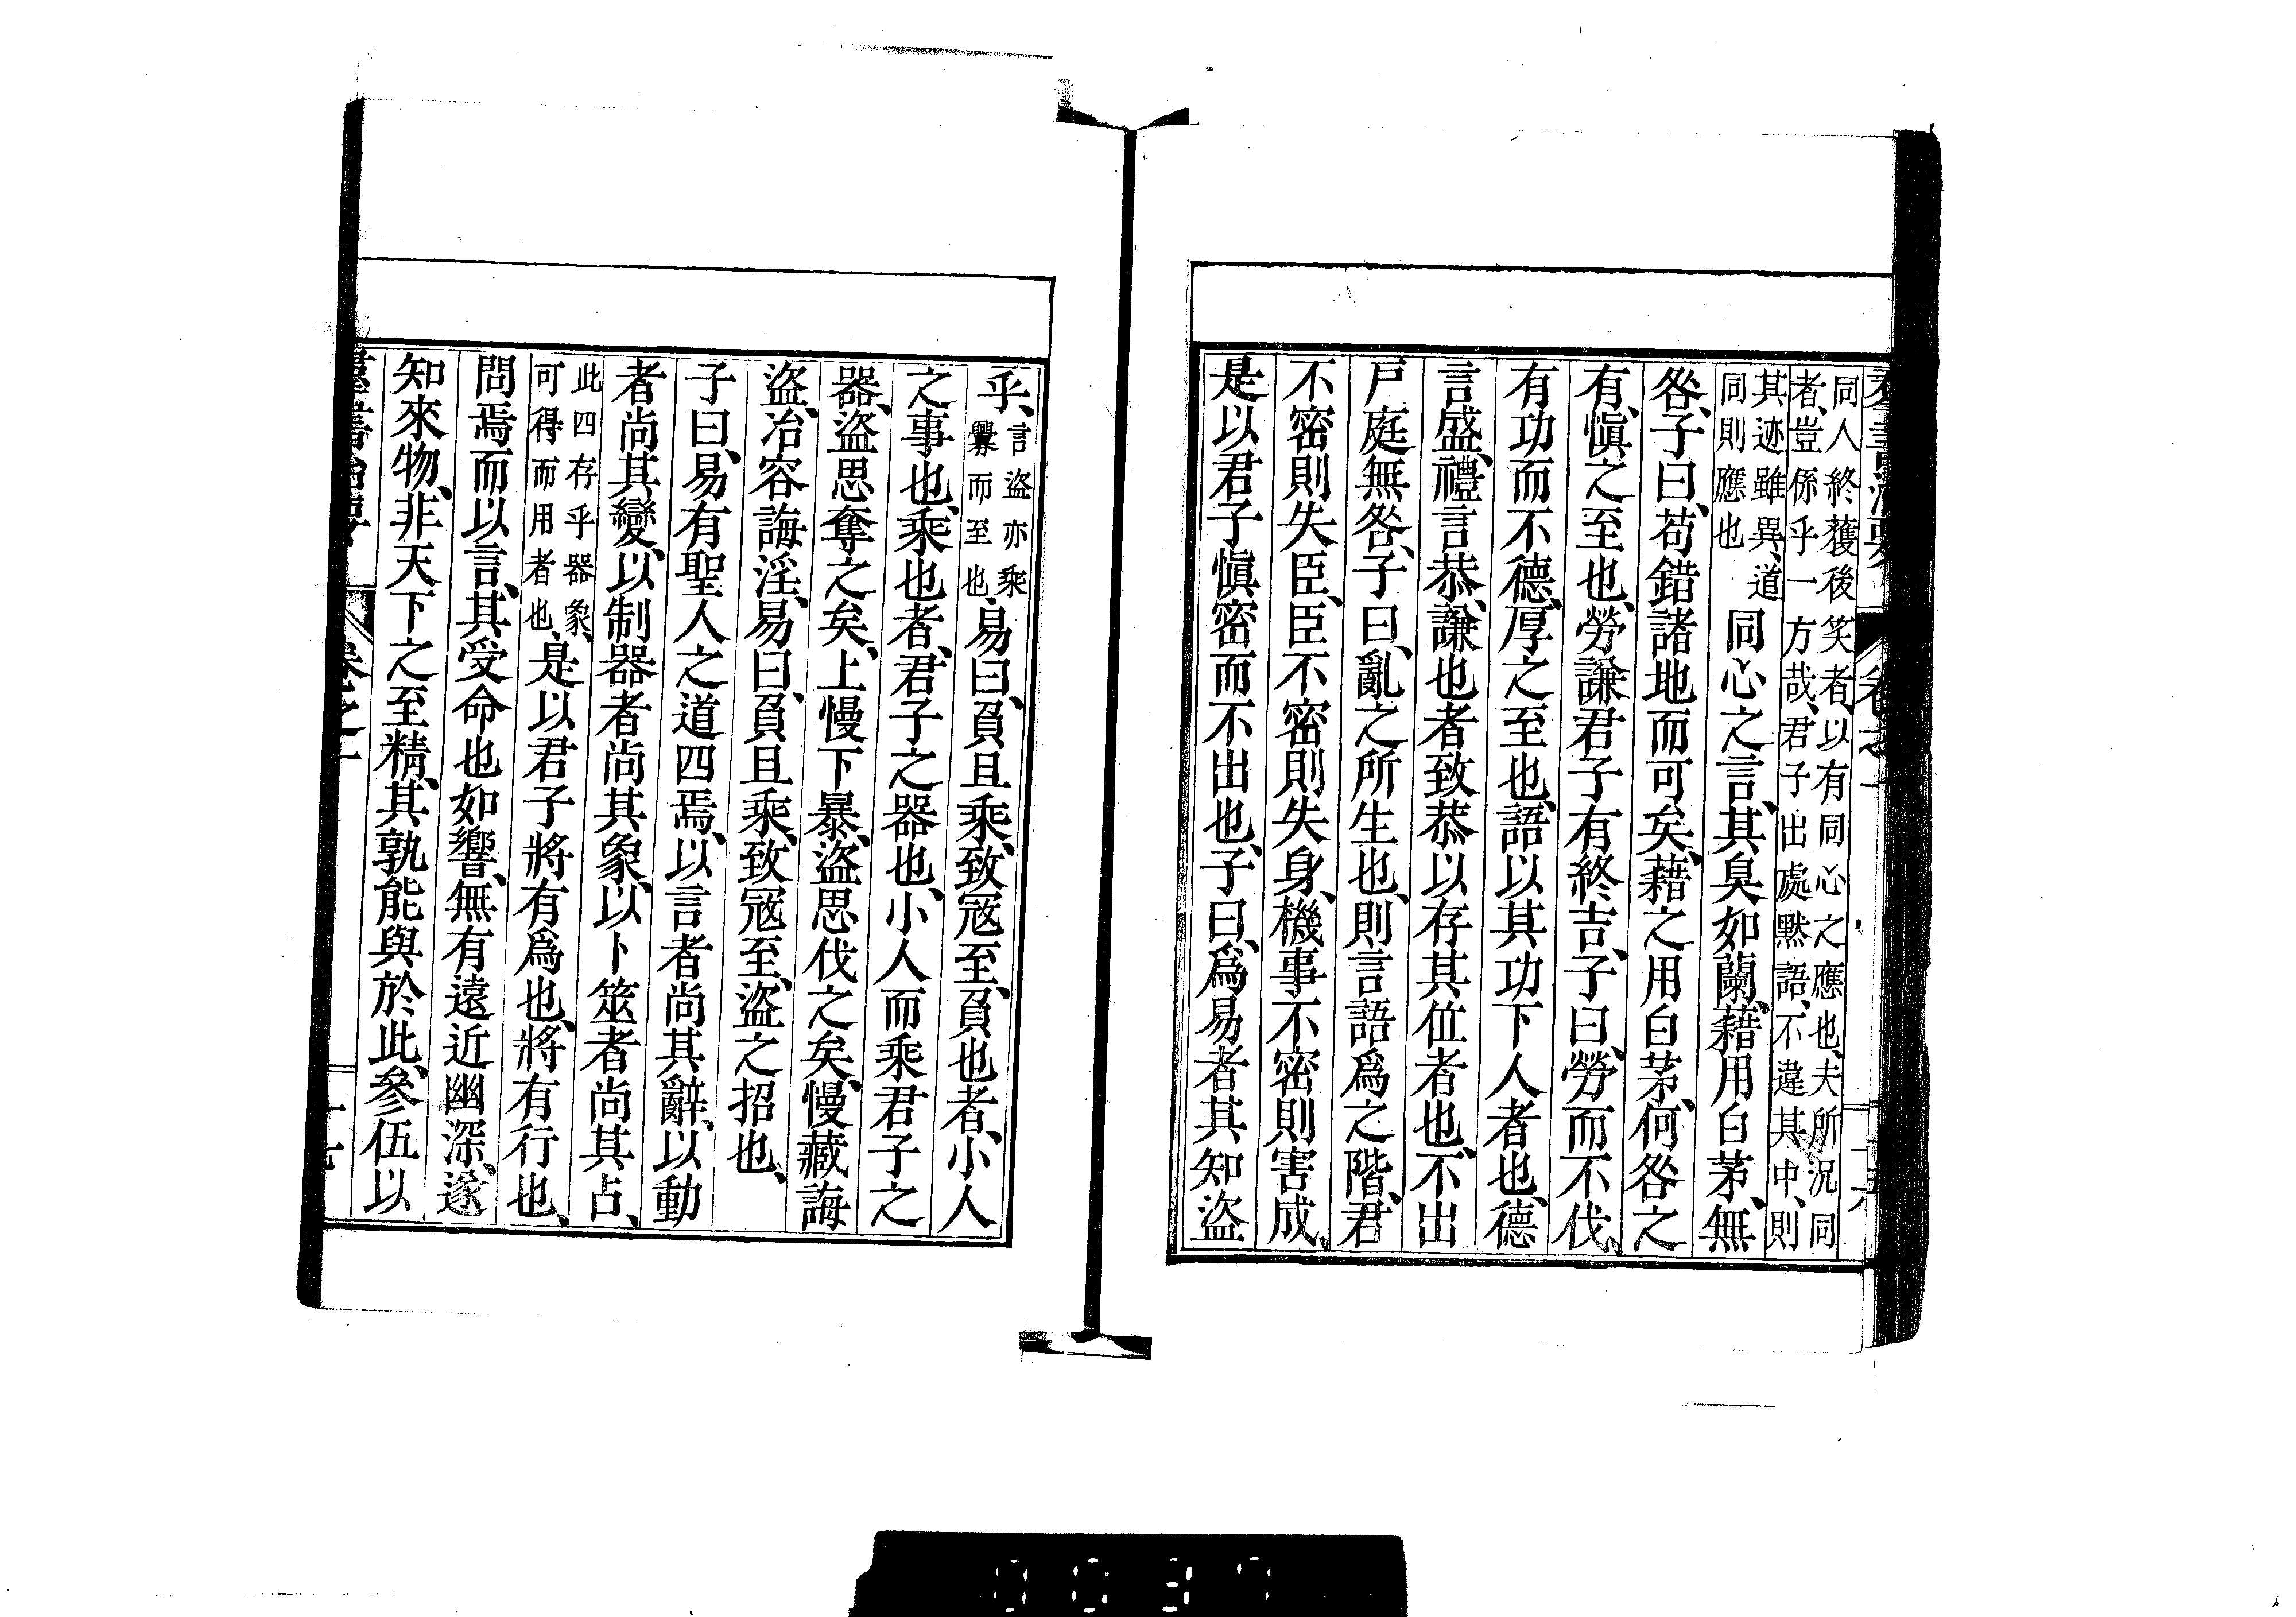 羣書治要 卷之一
同人終獲後笑者、以有同心之應也、夫所況同
者、豈係乎一方哉、君子出處默語、不違其中、則
其迹雖異、道
同則應也
同心之言、其臭如蘭、藉用白茅、無
咎、子曰、苟錯諸地而可矣、藉之用白茅、何咎之
有、愼之至也、勞謙君子有終吉、子曰、勞而不伐、
有功而不德、厚之至也、語以其功下人者也、德
言盛、禮言恭、謙也者致恭以存其位者也、不出
戶庭無咎、子曰、亂之所生也、則言語爲之階、君
不密則失臣、臣不密則失身、機事不密則害成、
是以君子愼密而不出也、子曰、爲易者其知盜
乎、
言盜亦乘
釁而至也、
易曰、負且乘、致寇至、負也者、小人
之事也、乘也者、君子之器也、小人而乘君子之
器、盜思奪之矣、上慢下暴、盜思伐之矣、慢藏誨
盜、冶容誨淫、易曰、負且乘、致寇至、盜之招也、
子曰、易有聖人之道四焉、以言者尚其辭、以動
者尚其變、以制器者尚其象、以卜筮者尚其占、
此四存乎器象、
可得而用者也、
是以君子將有爲也、將有行也、
問焉而以言、其受命也如響、無有遠近幽深、遂
知來物、非天下之至精、其孰能與於此、參伍以
羣書治要 卷之一 十七
0037